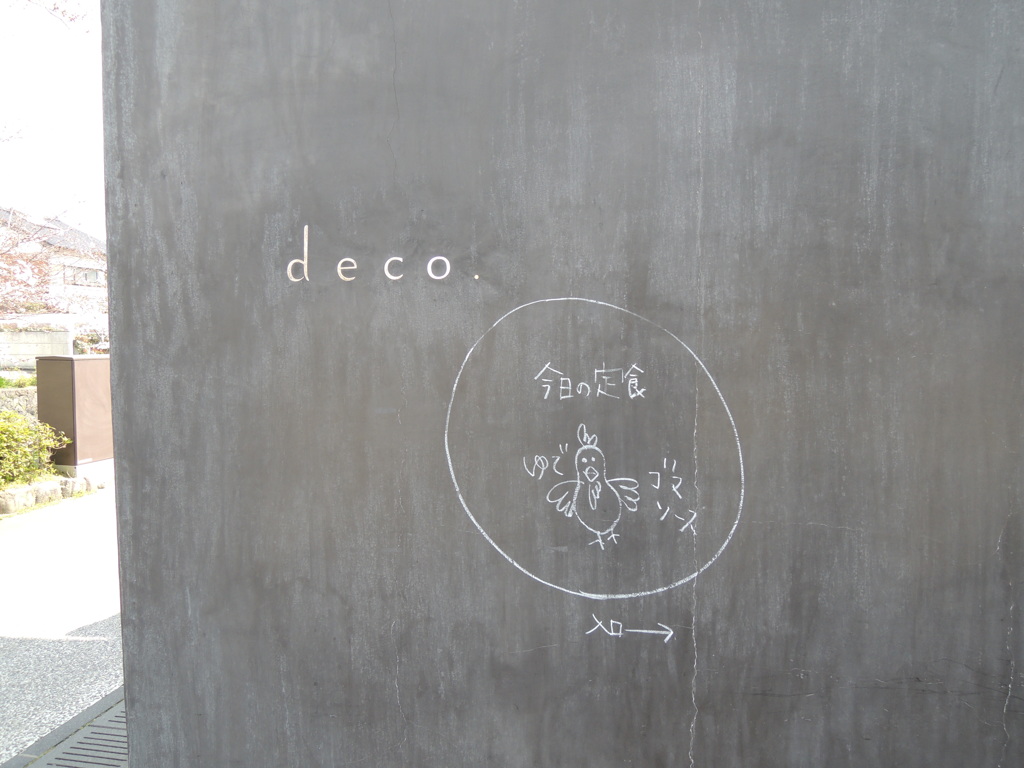 deco.
今日の定食
ゆで
ゴマ
ソース
入口→